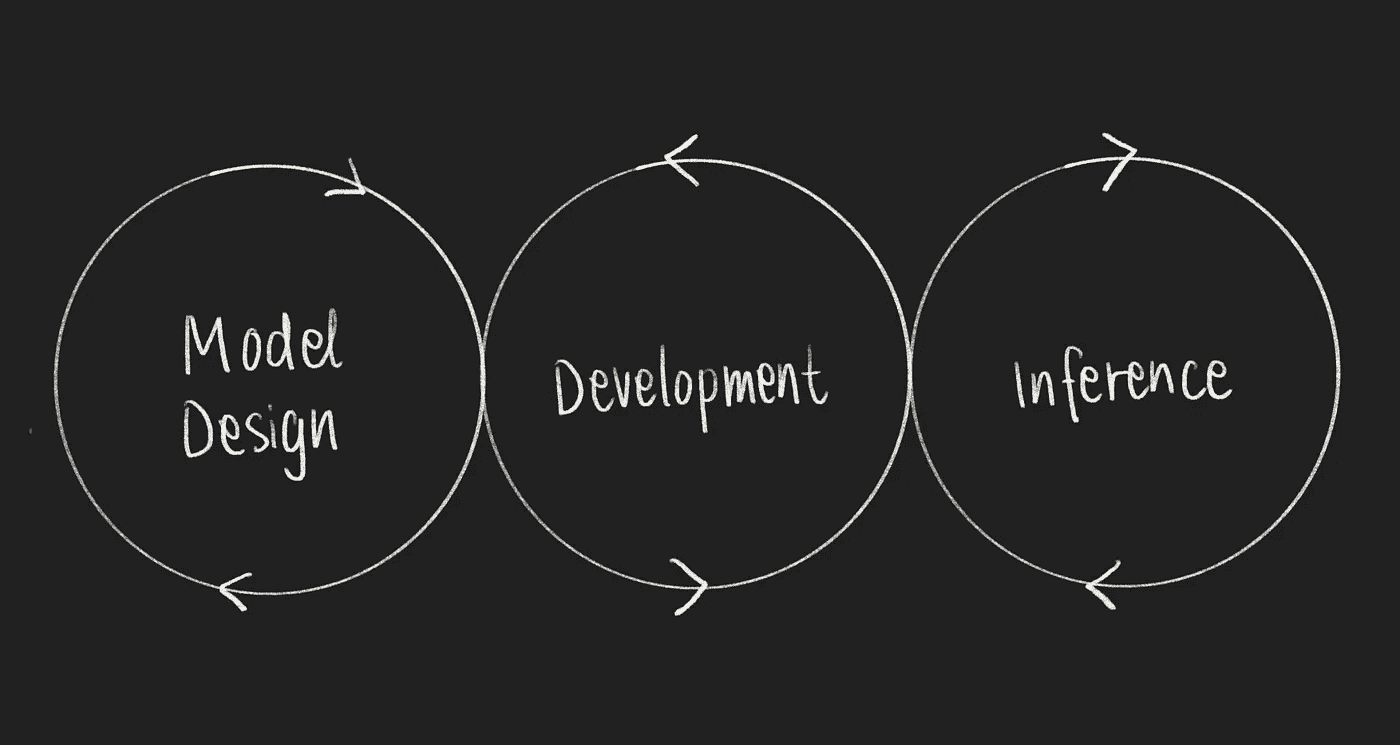 Model
Design
Development
Inference